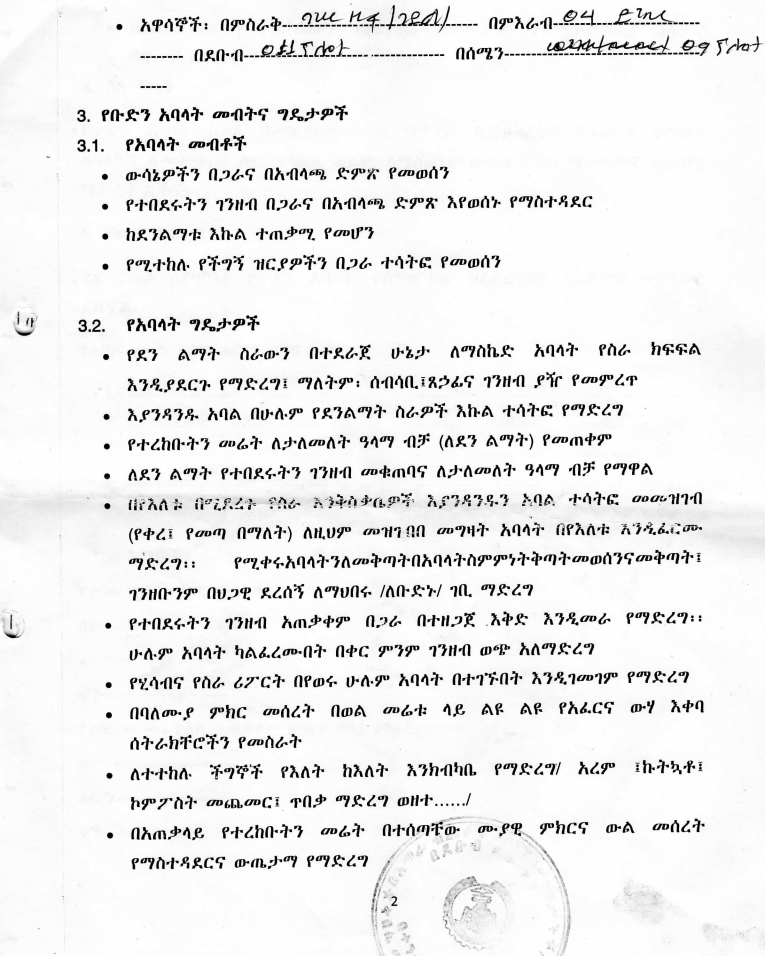 • አዋሳኞች፡ በምስራቅ---------- በምእራብ--04-----------
-------- በደቡብ------------------ በሰሜን----------
-----
3. የቡድን አባላት መብትና ግዴታዎች
3.1. የአባላት መብቶች
• ውሳኔዎችን በጋራና በአብላጫ ድምጽ የመወሰን
• የተበደሩትን ገንዘብ በጋራና በአብላጫ ድምጽ እየወሰኑ የማስተዳደር
• ከደንልማቱ እኩል ተጠቃሚ የመሆን
• የሚተከሉ የችግኝ ዝርያዎችን በጋራ ተሳትፎ የመወሰን
3.2. የአባላት ግዴታዎች
• የደን ልማት ስራውን በተደራጀ ሁኔታ ለማስኬድ አባላት የስራ ክፍፍል
እንዲያደርጉ የማድረግ፤ ማለትም፡ ሰብሳቢ፤ጸኃፊና ገንዘብ ያዥ የመምረጥ
• እያንዳንዱ አባል በሁሉም የደንልማት ስራዎች እኩል ተሳትፎ የማድረግ
• የተረከቡትን መሬት ለታለመለት ዓላማ ብቻ (ለደን ልማት) የመጠቀም
• ለደን ልማት የተበደሩትን ገንዘብ መቁጠባና ለታለመለት ዓላማ ብቻ የማዋል
• በየእለቱ በሚደረጉ የስራ እንቅስቃሴዎች እያንዳንዱን አባል ተሳትፎ መመዝገብ
(የቀረ፤ የመጣ በማለት) ለዚህም መዝገብበ መግዛት አባላት በየእለቱ እንዲፈርሙ
ማድረግ፡፡ የሚቀሩአባላትንለመቅጣትበአባላትስምምነትቅጣትመወሰንናመቅጣት፤
ገንዘቡንም በህጋዊ ደረሰኝ ለማህበሩ /ለቡድኑ/ ገቢ ማድረግ
• የተበደሩትን ገንዘብ አጠቃቀም በጋራ በተዘጋጀ እቅድ እንዲመራ የማድረግ፡፡
ሁሉም አባላት ካልፈረሙበት በቀር ምንም ገንዘብ ወጭ አለማድረግ
• የሂሳብና የስራ ሪፖርት በየወሩ ሁሉም አባላት በተገኙበት እንዲገመገም የማድረግ
• በባለሙያ ምክር መሰረት በወል መሬቱ ላይ ልዩ ልዩ የአፈርና ውሃ እቀባ
ሰትራክቸሮችን የመስራት
• ለተተከሉ ችግኞች የእለት ከእለት እንክብካቤ የማድረግ/ አረም ፤ኩትኳቶ፤
ኮምፖስት መጨመር፤ ጥበቃ ማድረግ ወዘተ....../
• በአጠቃላይ የተረከቡትን መሬት በተሰጣቸው ሙያዊ ምክርና ውል መሰረት
የማስተዳደርና ውጤታማ የማድረግ
2